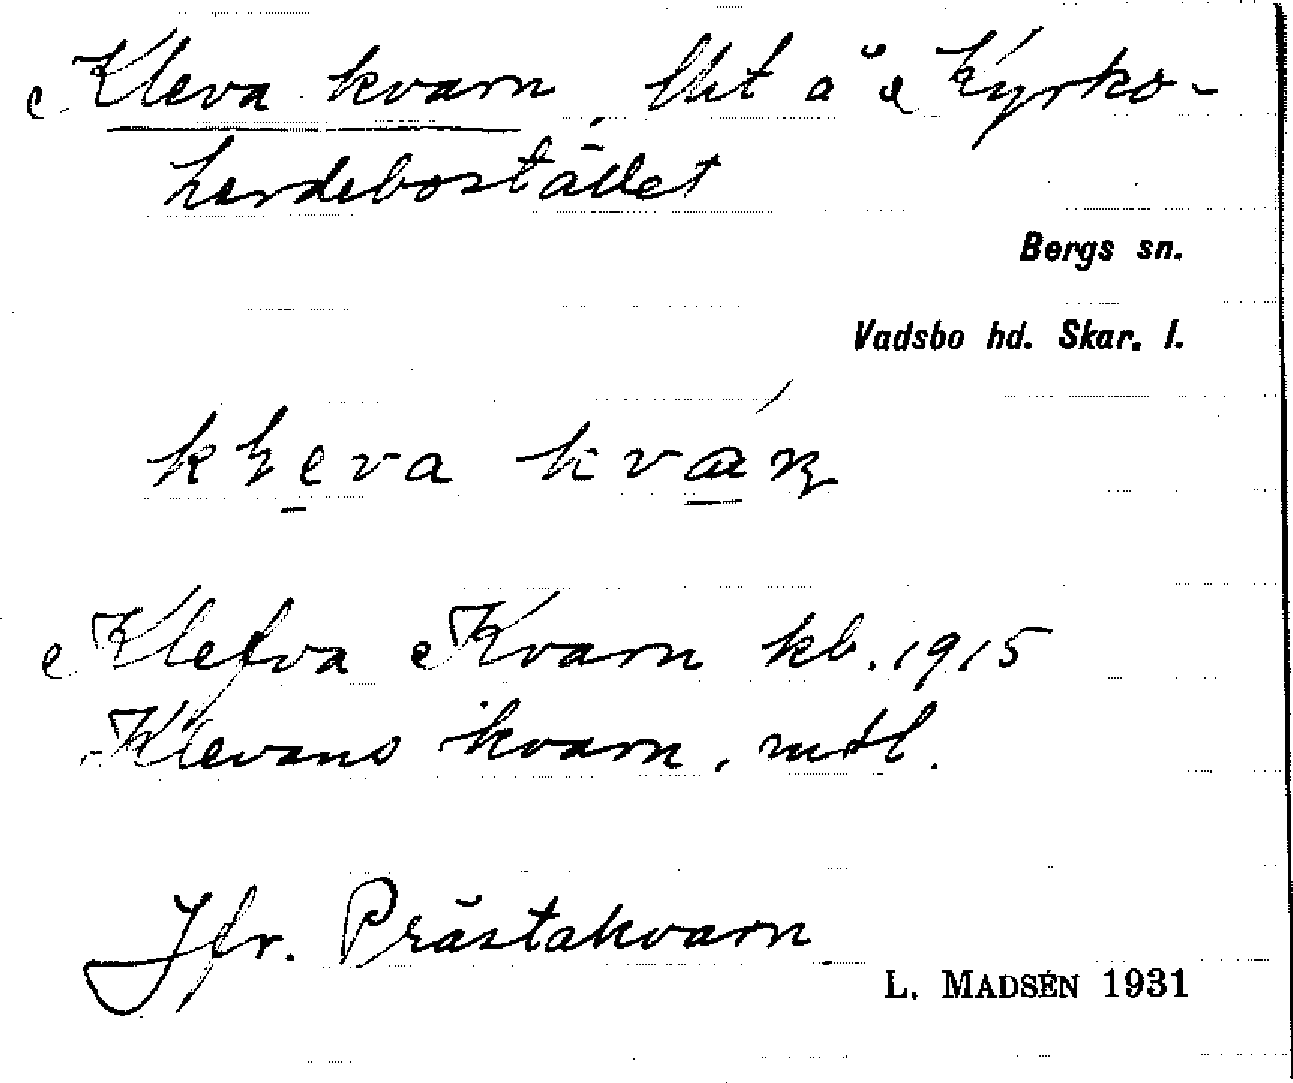 Kleva kvarn, lht å Kyrko-
herdebostället
Bergs sn.
Vadsbo hd. Skar. l.
Klefva Kvarn kb. 1915
Klevans kvarn, mtl.
Jfr. Prästakvarn
L. MADSÉN 1931